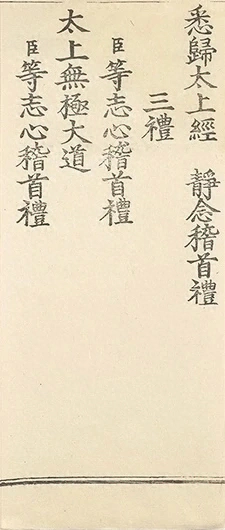 悉歸太上經　靜念稽首禮
三禮
臣等志心稽首禮
太上無極大道
臣等志心稽首禮